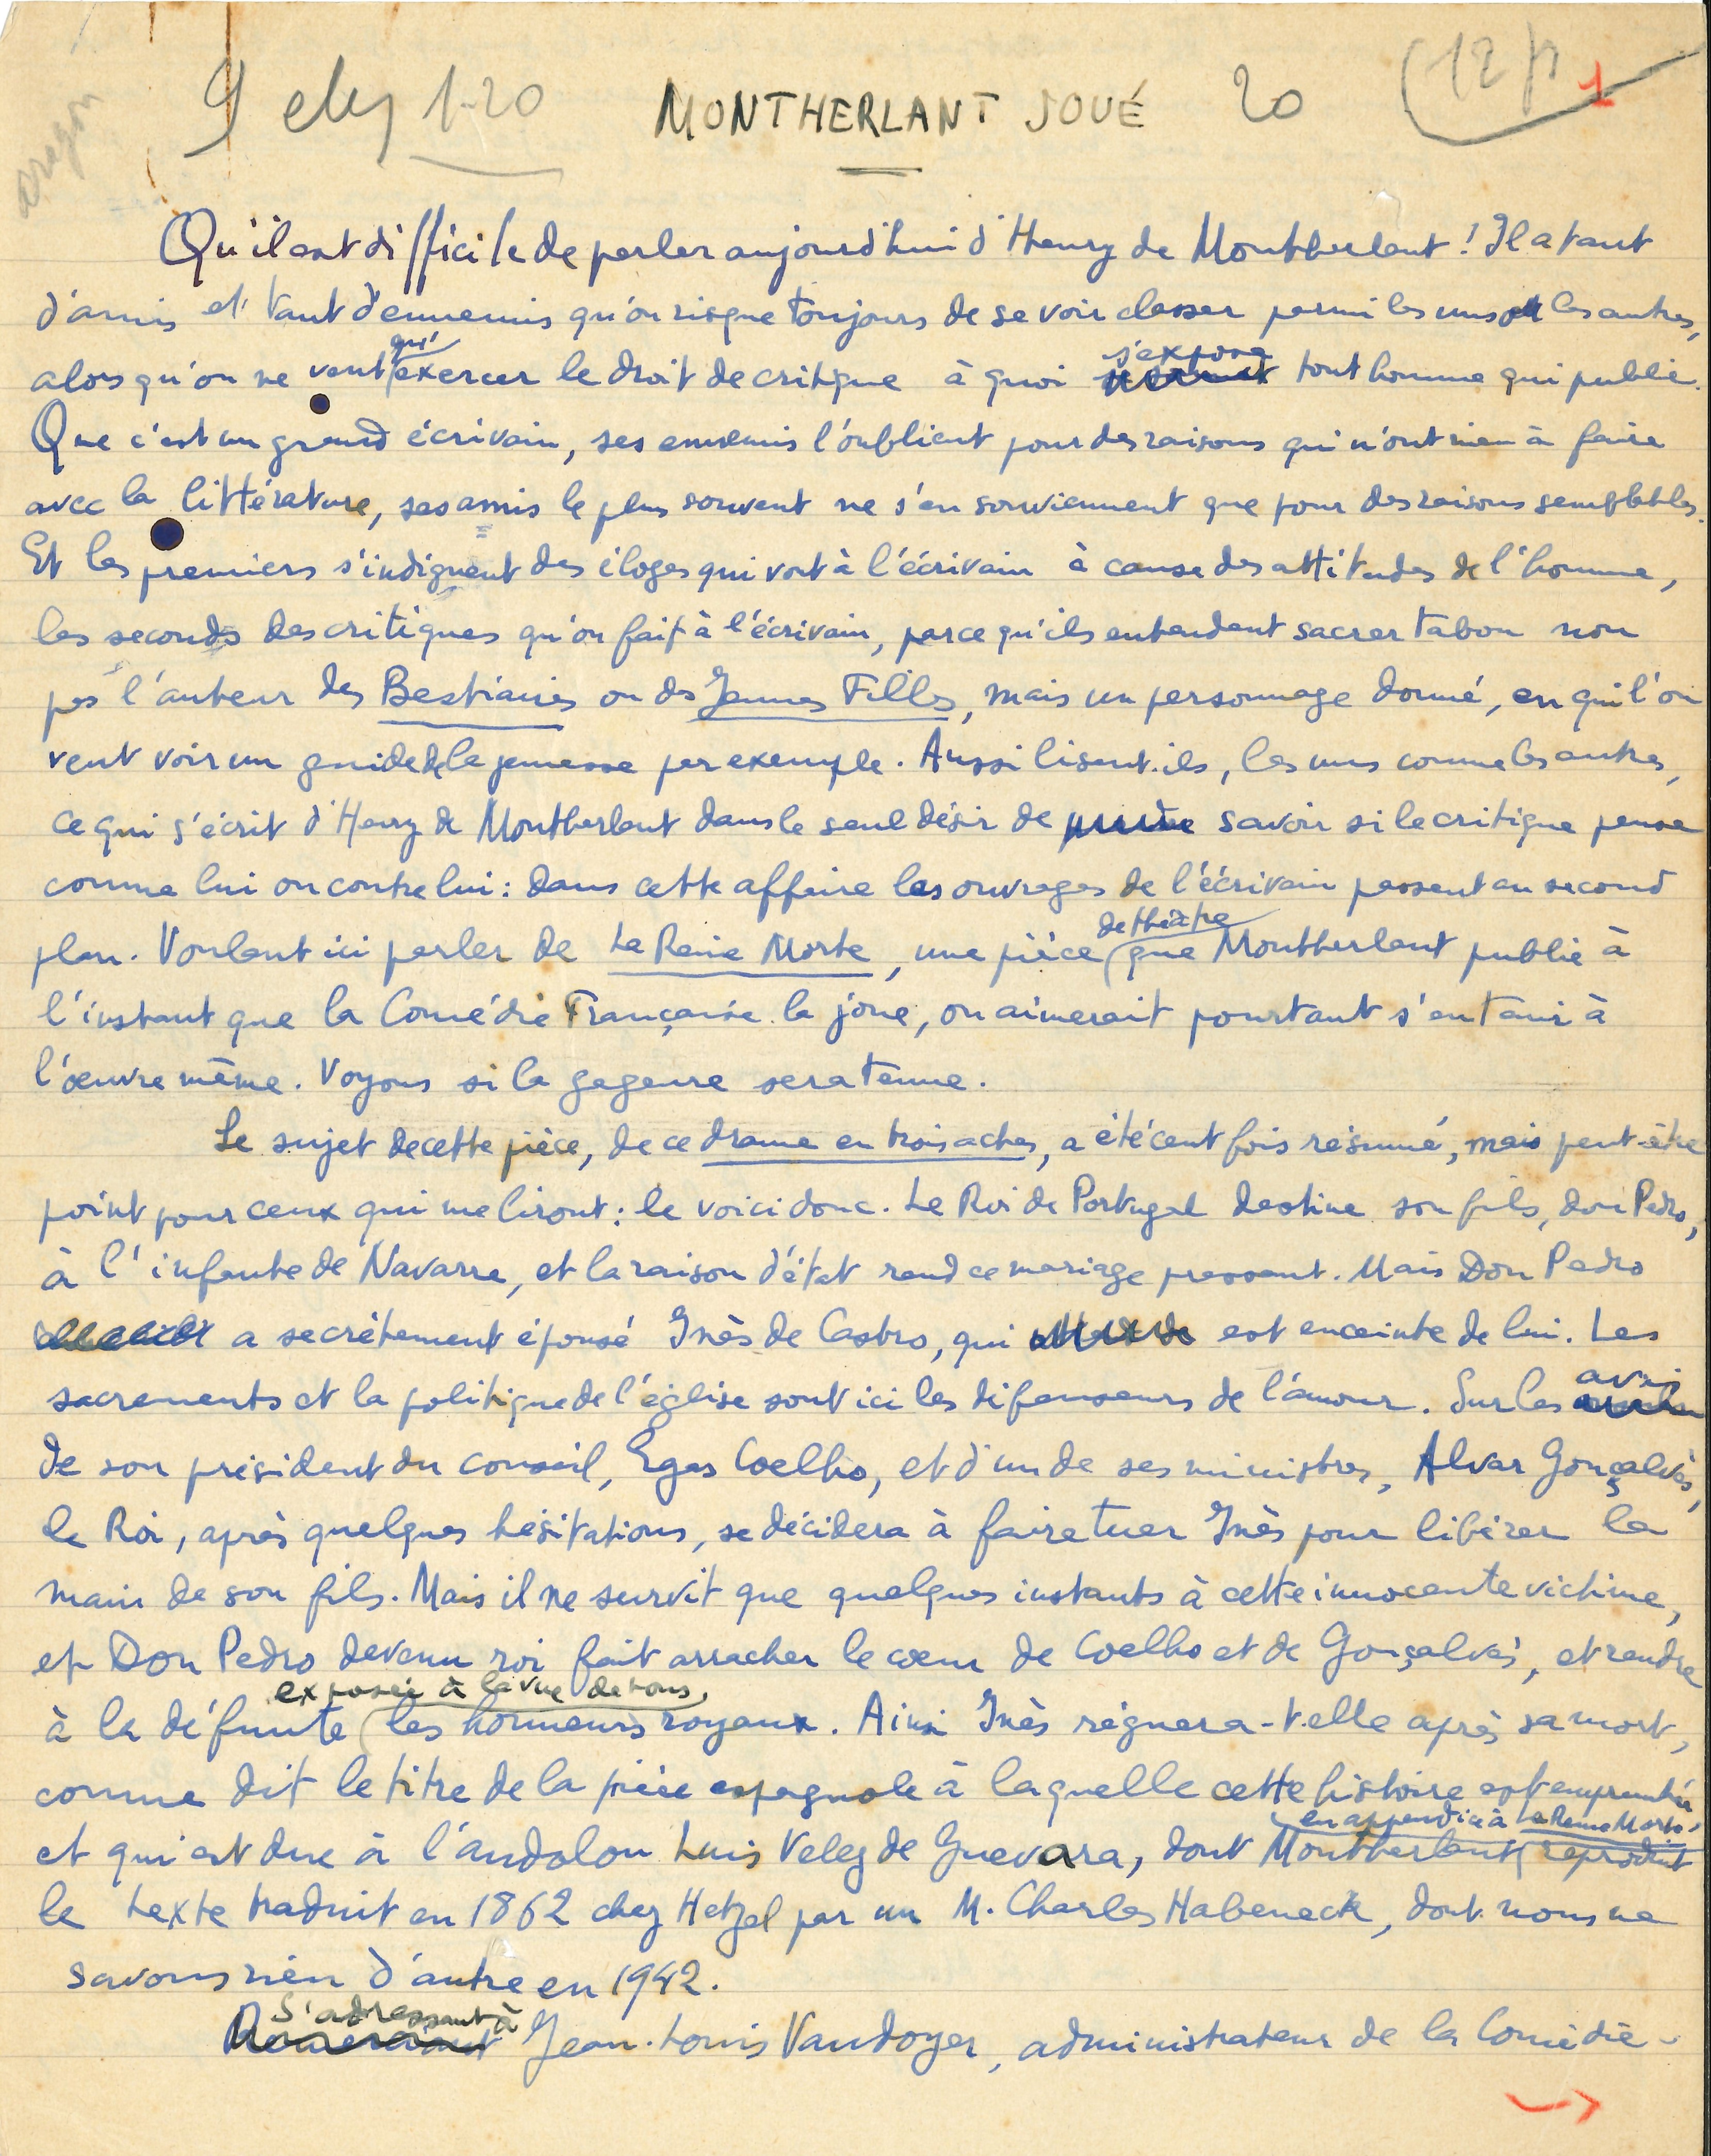 aragon
9 elz 1-20 MONTHERLANT JOUÉ 20 (12)
1
Qu'il est difficile de parler aujourd'hui d'Henry de Montherlant ! Il a tant
d'amis et tant d'ennemis qu'on risque toujours de se voir classer parmi les uns ou les autres,
qu' s'expose
alors qu'on ne veut exercer le droit de critique à quoi tout homme qui publie.
Que c'est un grand écrivain, ses ennemis l'oublient pour des raisons qui n'ont rien à faire
avec la littérature, ses amis le plus souvent ne s'en souviennent que pour des raisons semblables.
Et les premiers s'indignent des éloges qui vont à l'écrivain à cause des attitudes de l'homme,
les seconds des critiques qu'on fait à l'écrivain, parce qu'ils entendent sacrer tabou non
pas l'auteur des Bestiaires ou des Jeunes Filles, mais un personnage donné, en qui l'on
veut voir un guide de la jeunesse par exemple. Aussi lisent-ils, les uns comme les autres,
ce qui s'écrit d'Henry de Montherlant dans le seul désir de savoir si le critique pense
comme lui ou contre lui : dans cette affaire les ouvrages de l'écrivain passent au second
de théâtre
plan. Voulant ici parler de La Reine Morte, une pièce que Montherlant publie à
l'instant que la Comédie Française la joue, on aimerait pourtant s'en tenir à
l'œuvre même. Voyons si la gageure sera tenue.
Le sujet de cette pièce, de ce drame en trois actes, a été cent fois résumé, mais peut-être
point pour ceux qui me liront : le voici donc. Le Roi de Portugal destine son fils, don Pedro,
à l'infante de Navarre, et la raison d'état rend ce mariage pressant. Mais Don Pedro
a secrètement épousé Inès de Castro, qui est enceinte de lui. Les
avis
sacrements et la politique de l'église sont ici les défenseurs de l'amour. Sur les
de son président du conseil, Egas Coelho, et d'un de ses ministres, Alvar Gonçalvès,
le Roi, après quelques hésitations, se décidera à faire tuer Inès pour libérer la
main de son fils. Mais il ne survit que quelques instants à cette innocente victime,
et Don Pedro devenu roi fait arracher le cœur de Coelho et de Gonçalvès, et rendre
exposée à la vue de tous,
à la défunte les honneurs royaux. Ainsi Inès règnera-t-elle après sa mort,
comme dit le titre de la pièce espagnole à laquelle cette histoire est empruntée
en appendice à La Reine Morte,
et qui est due à l'andalou Luis Velez de Guevara, dont Montherlant reproduit
le texte traduit en 1862 chez Hetzel par un M. Charles Habeneck, dont nous ne
savons rien d'autre en 1942.
S'adressant à
Jean-Louis Vaudoyer, administrateur de la Comédie-